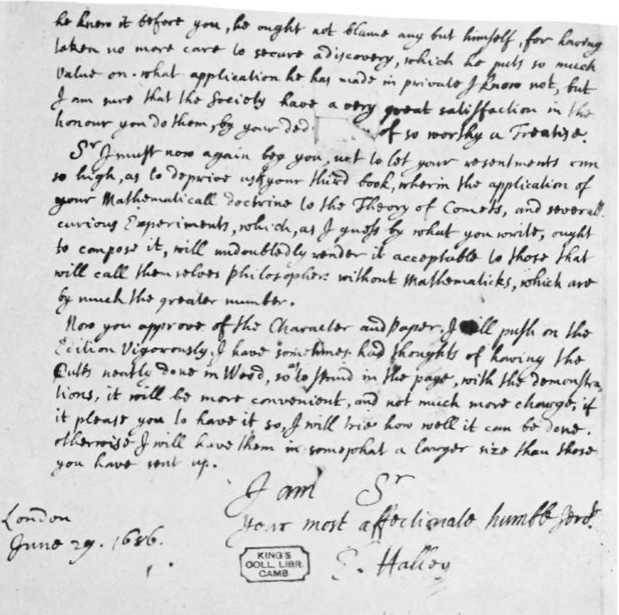 he knew it before you, he ought not blame any but himself, for having
taken no more care to secure a discovery, which he puts so much
Value on. what application he has made in private I know not, but
I am sure that the Society have a very great satisfaction in the
honour you do them, by your ded of so worthy a Treatise.
Sr I must now again beg you, not to let your resentments run
so high, as to deprive us of your third book, wherin the application of
your Mathematicall doctrine to the Theory of Comets, and severall
curious Experiments, which, as I guess by what you write, ought
to compose it, will undoubtedly render it acceptable to those that
will call themselves philosophers without Mathematicks, which are
by much the greater number.
Now you approve of the Character and Paper, I will push on the
Edition Vigorously. I have sometimes had thoughts of having the
Cutts neatly done in Wood, so as to stand in the page, with the demonstra-
tions, it will be more convenient, and not much more charge, if
it please you to have it so, I will trie how well it can be done.
otherwise I will have them in somewhat a larger size than those
you have sent up.
I am Sr
Your most affectionate humble servt.
E. Halley
London
June 29. 1686.
KING'S
COLL. LIBR.
CAMB